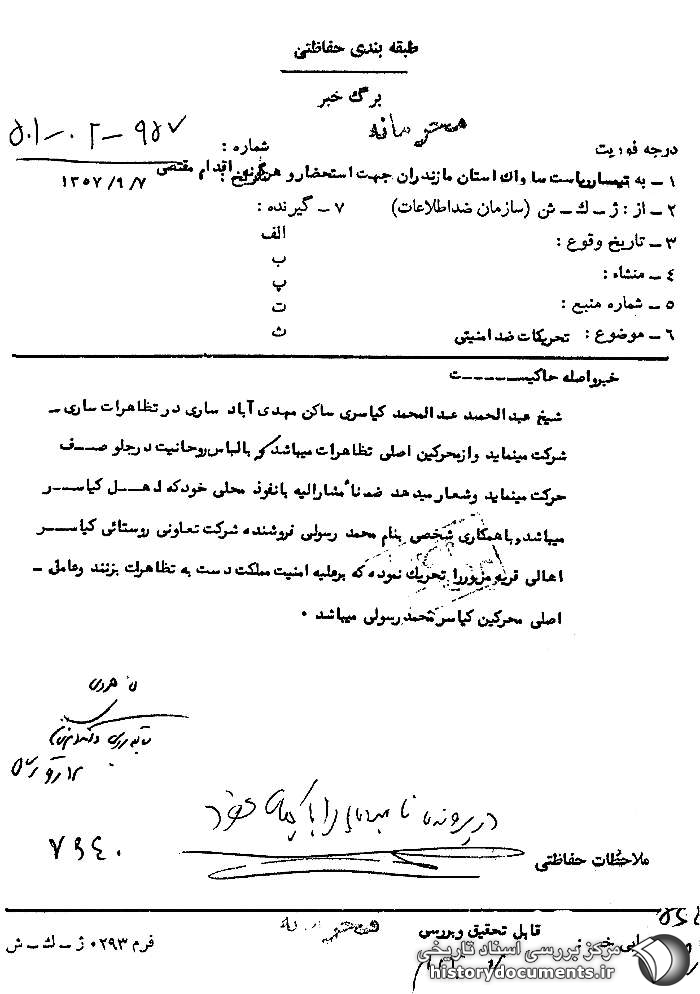 طبقه بندی حفاظتی
برگ خبر
مستقیمانه
درجه فوریت
شماره : ۹۵۷ - ۰۲ - ۵۰۱
۱ - به تیمسار ریاست ساواك استان مازندران جهت استحضار و هرگونه اقدام مقتضی
تاریخ : ۱۳۵۷/۹/۷
۲ - از : ژ - ك - ش (سازمان ضد اطلاعات)
۷ - گیرنده :
۳ - تاریخ وقوع :
الف
۴ - منشاء :
ب
پ
۵ - شماره منبع :
ت
۶ - موضوع : تحریکات ضد امنیتی
ث
خبرواصله حاکیســـــت
شیخ عبدالحمید عبدالمحمد کیاسری ساکن مهدی آباد ساری در تظاهرات ساری -
شرکت مینماید و از محرکین اصلی تظاهرات میباشد که بالباس روحانیت در جلو صـــف
حرکت مینماید وشعار میدهد ضمناً مشارالیه بانفوذ محلی خود که اهــل کیاســـر
میباشد، باهمکاری شخصی بنام محمد رسولی فروشنده شرکت تعاونی روستائی کیاســـر
اهالی قریه مزبور را تحریك نموده که برعلیه امنیت مملکت دست به تظاهرات بزنند وعاملی -
اصلی محرکین کیاسر محمد رسولی میباشد ۰
در پرونده نامبرده
۷۶۴۰
ملاحظات حفاظتی
قابل تحقیق و بررسی
فرم ۰۲۹۳ ژ - ك - ش
مرکز بررسی اسناد تاریخی
historydocuments.ir